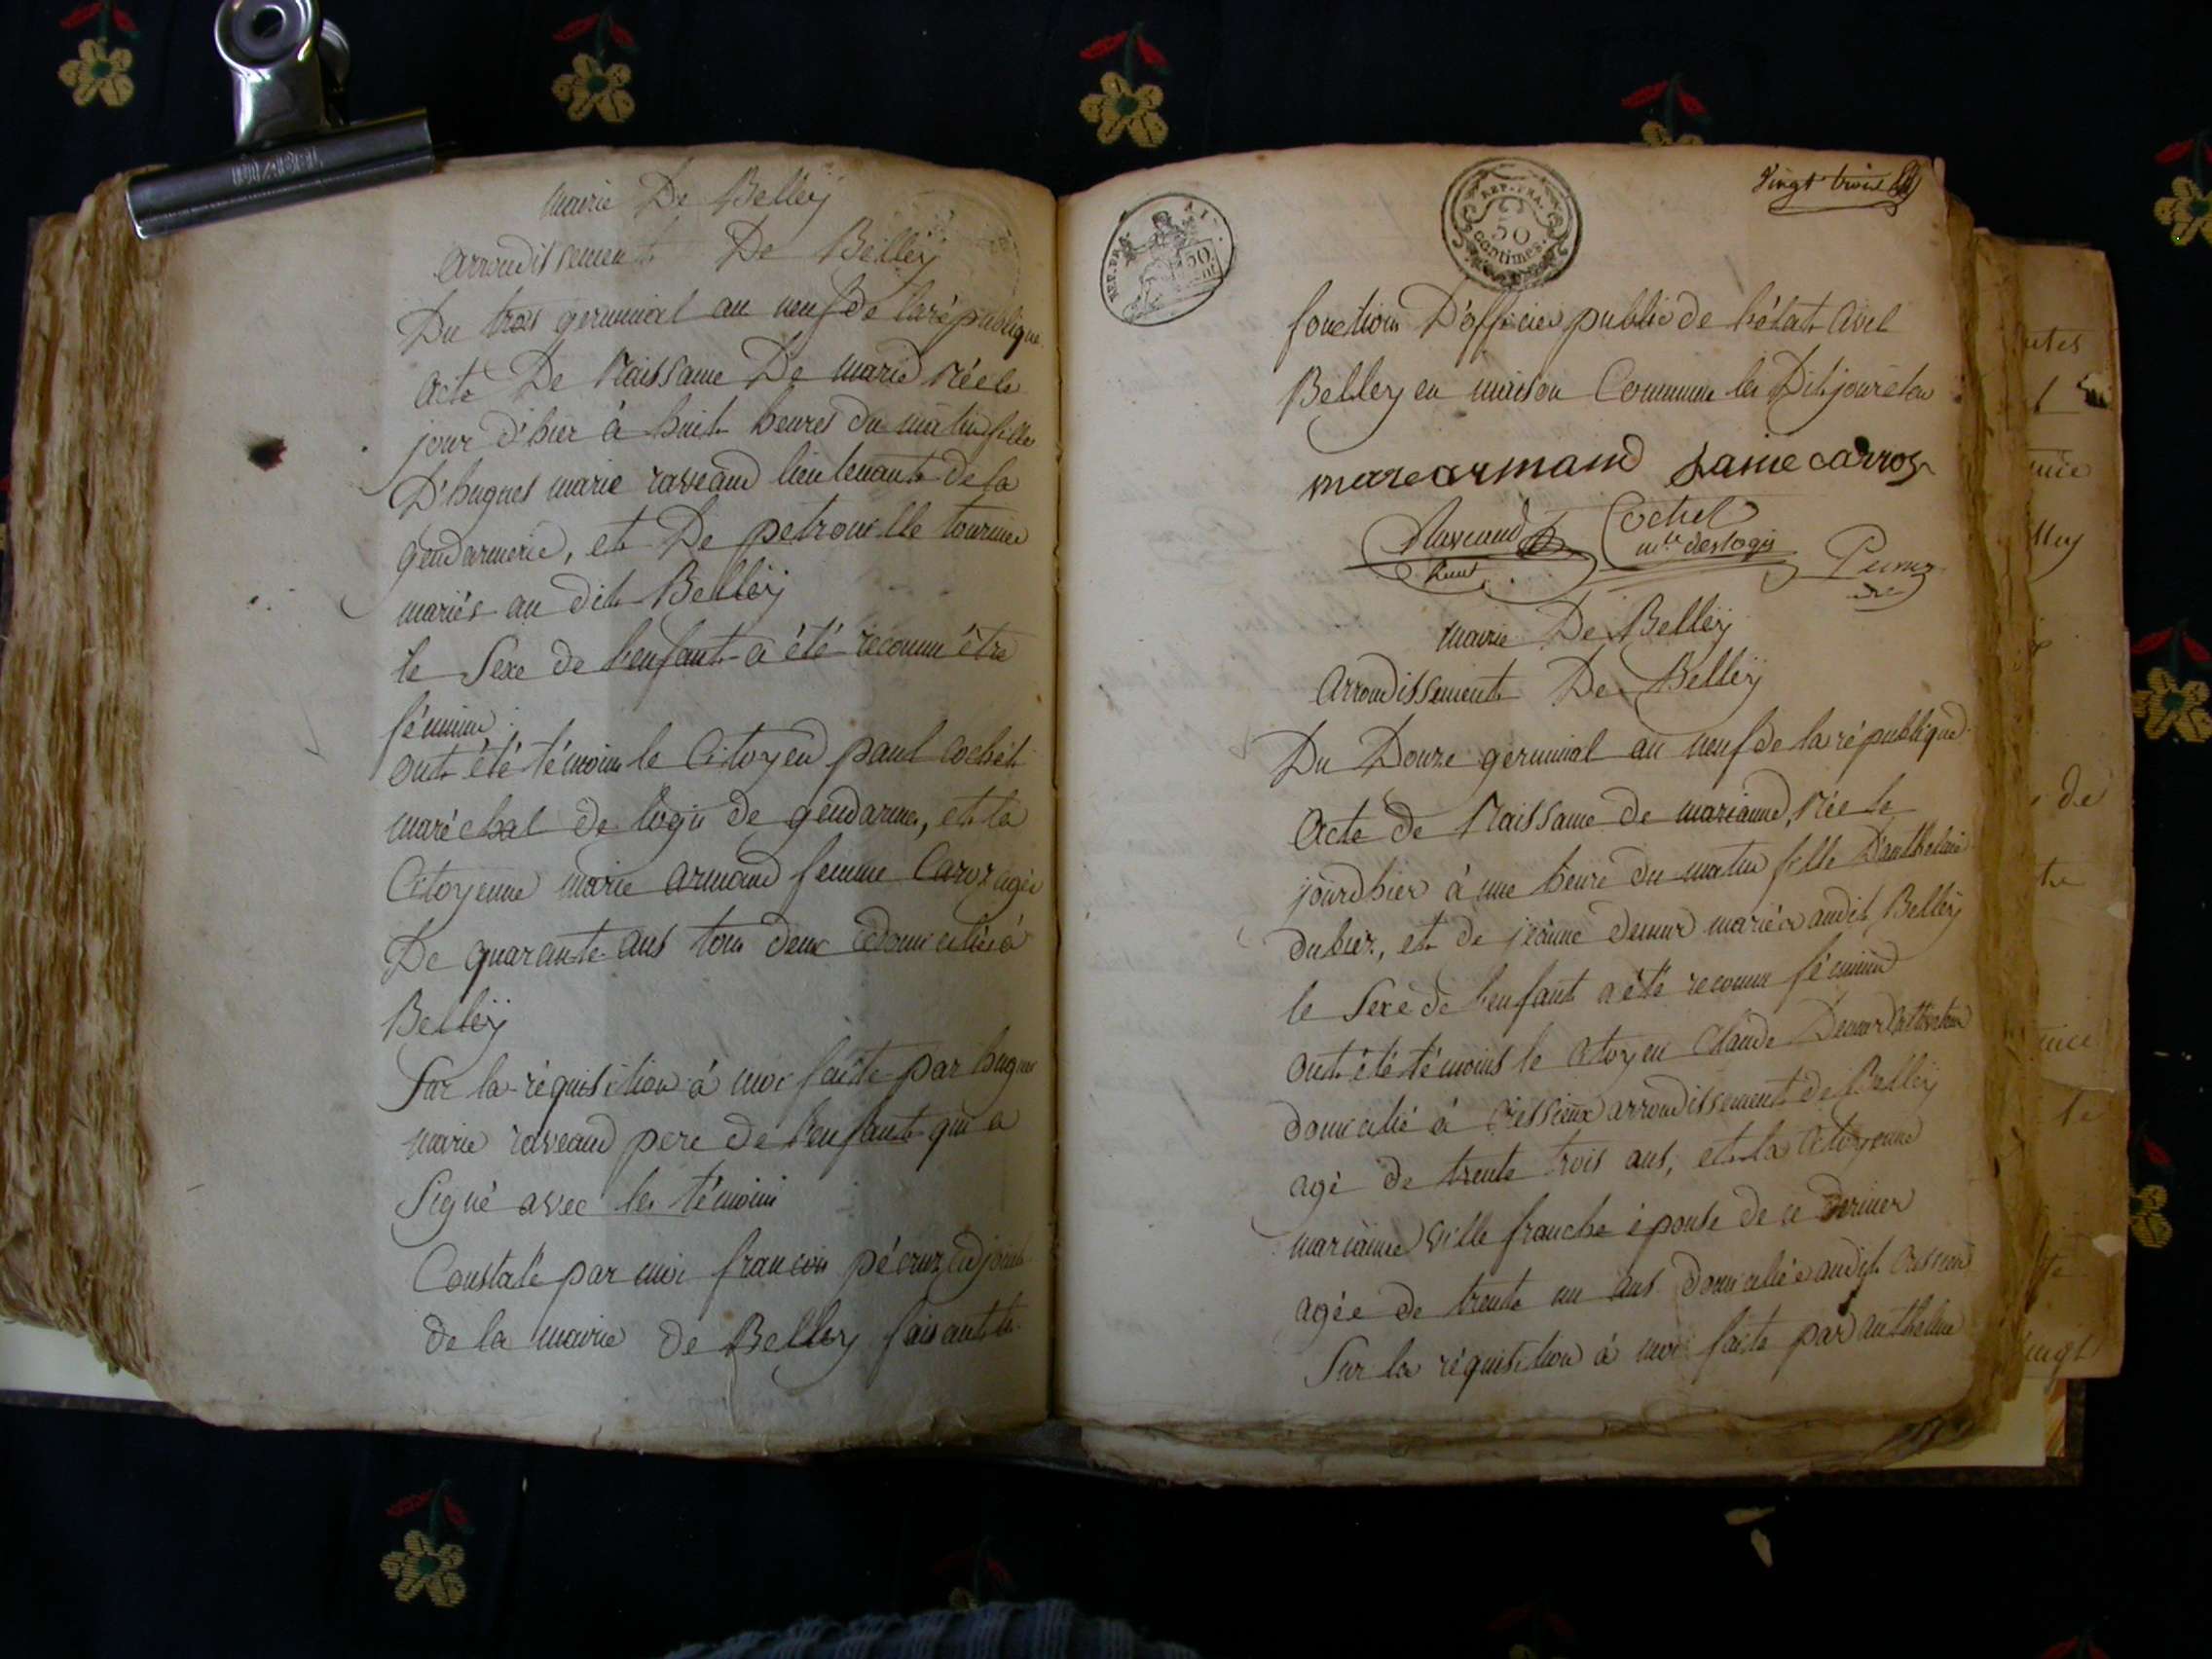 mairie De Belleÿ
arrondissement De Belleÿ
Du trois germinal an neuf de la république
acte De Naissance De marie Née le
jour d'hier à huit heures du matin fille
D'hugues marie raveaud lieutenant de la
gendarmerie, et De petronille tournier
mariés au dit Belleÿ
le Sexe de l'enfant a été reconnu être
féminin
ont été témoins le Citoyen paul cochet
maréchal de logis de gendarmes, et la
Citoyenne marie armand femme Caroz agée
De quarante ans tous deux domiciliés à
Belleÿ
Sur la réquisition à moi faite par hugues
marie raveaud pere de l'enfant qui a
Signé avec les témoins
Constaté par moi françois adjoint
de la mairie de Belley faisant les
Vingt trois
REP. FRA. 50 cent
REP. FRA. 50 centimes.
fonctions D'officier public de l'état civil
Belley en maison Commune les Dits jour et an
marearmand
Raveaud Cochet
mal deslogis
mairie De Belleÿ
arrondissement De Belleÿ
Du Douze germinal an neuf de la république
Acte de Naissance de marianne, Née le
jour d'hier à une heure du matin fille D'anthelme
dubiez, et de jeanne demur mariés audit Belleÿ
le Sexe de l'enfant a été reconnu féminin
ont été témoins le Citoyen Claude Demur Cultivateur
domicilié à Cressieux arrondissement de Belleÿ
agé de trente trois ans, et la Citoyenne
marianne ville franche épouse de ce dernier
agée de trente un ans domiciliée audit
Sur la réquisition à moi faite par anthelme